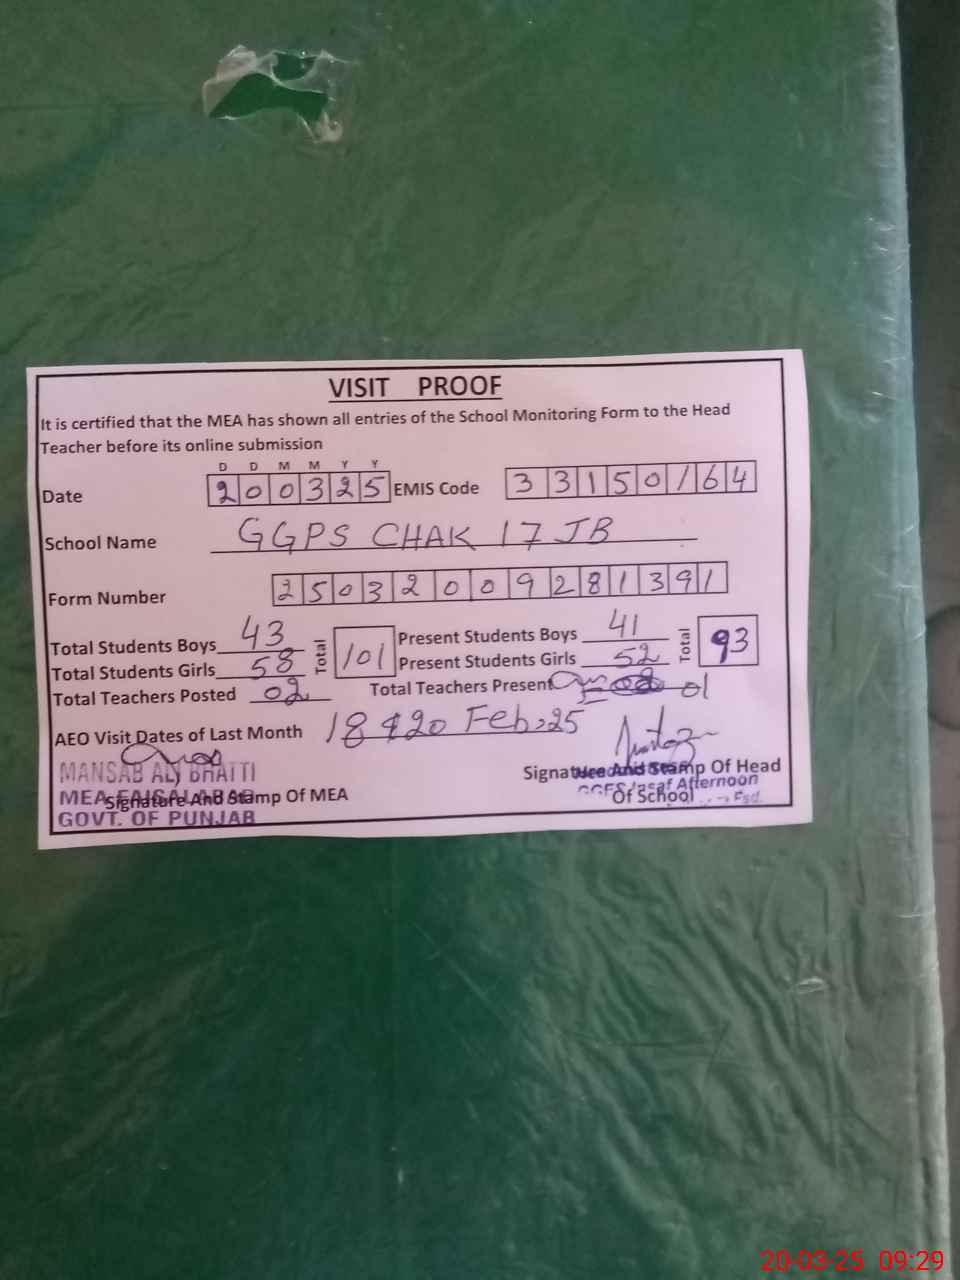 VISIT PROOF
It is certified that the MEA has shown all entries of the School Monitoring Form to the Head
Teacher before its online submission
D D M M Y Y
Date 200325 EMIS Code 33150164
School Name GGPS CHAK 17 JB
Form Number 25032009281391
Total Students Boys 43 Total 101 Present Students Boys 41 Total 93
Total Students Girls 58 Present Students Girls 52
Total Teachers Posted 02 Total Teachers Present 01
AEO Visit Dates of Last Month 18 & 20 Feb, 25
MANSAB ALI BHATTI
MEA FAISALABAD
Signature And Stamp Of MEA
GOVT. OF PUNJAB
Signature And Stamp Of Head
Of School
Afternoon
Fsd.
20-03-25 09:29